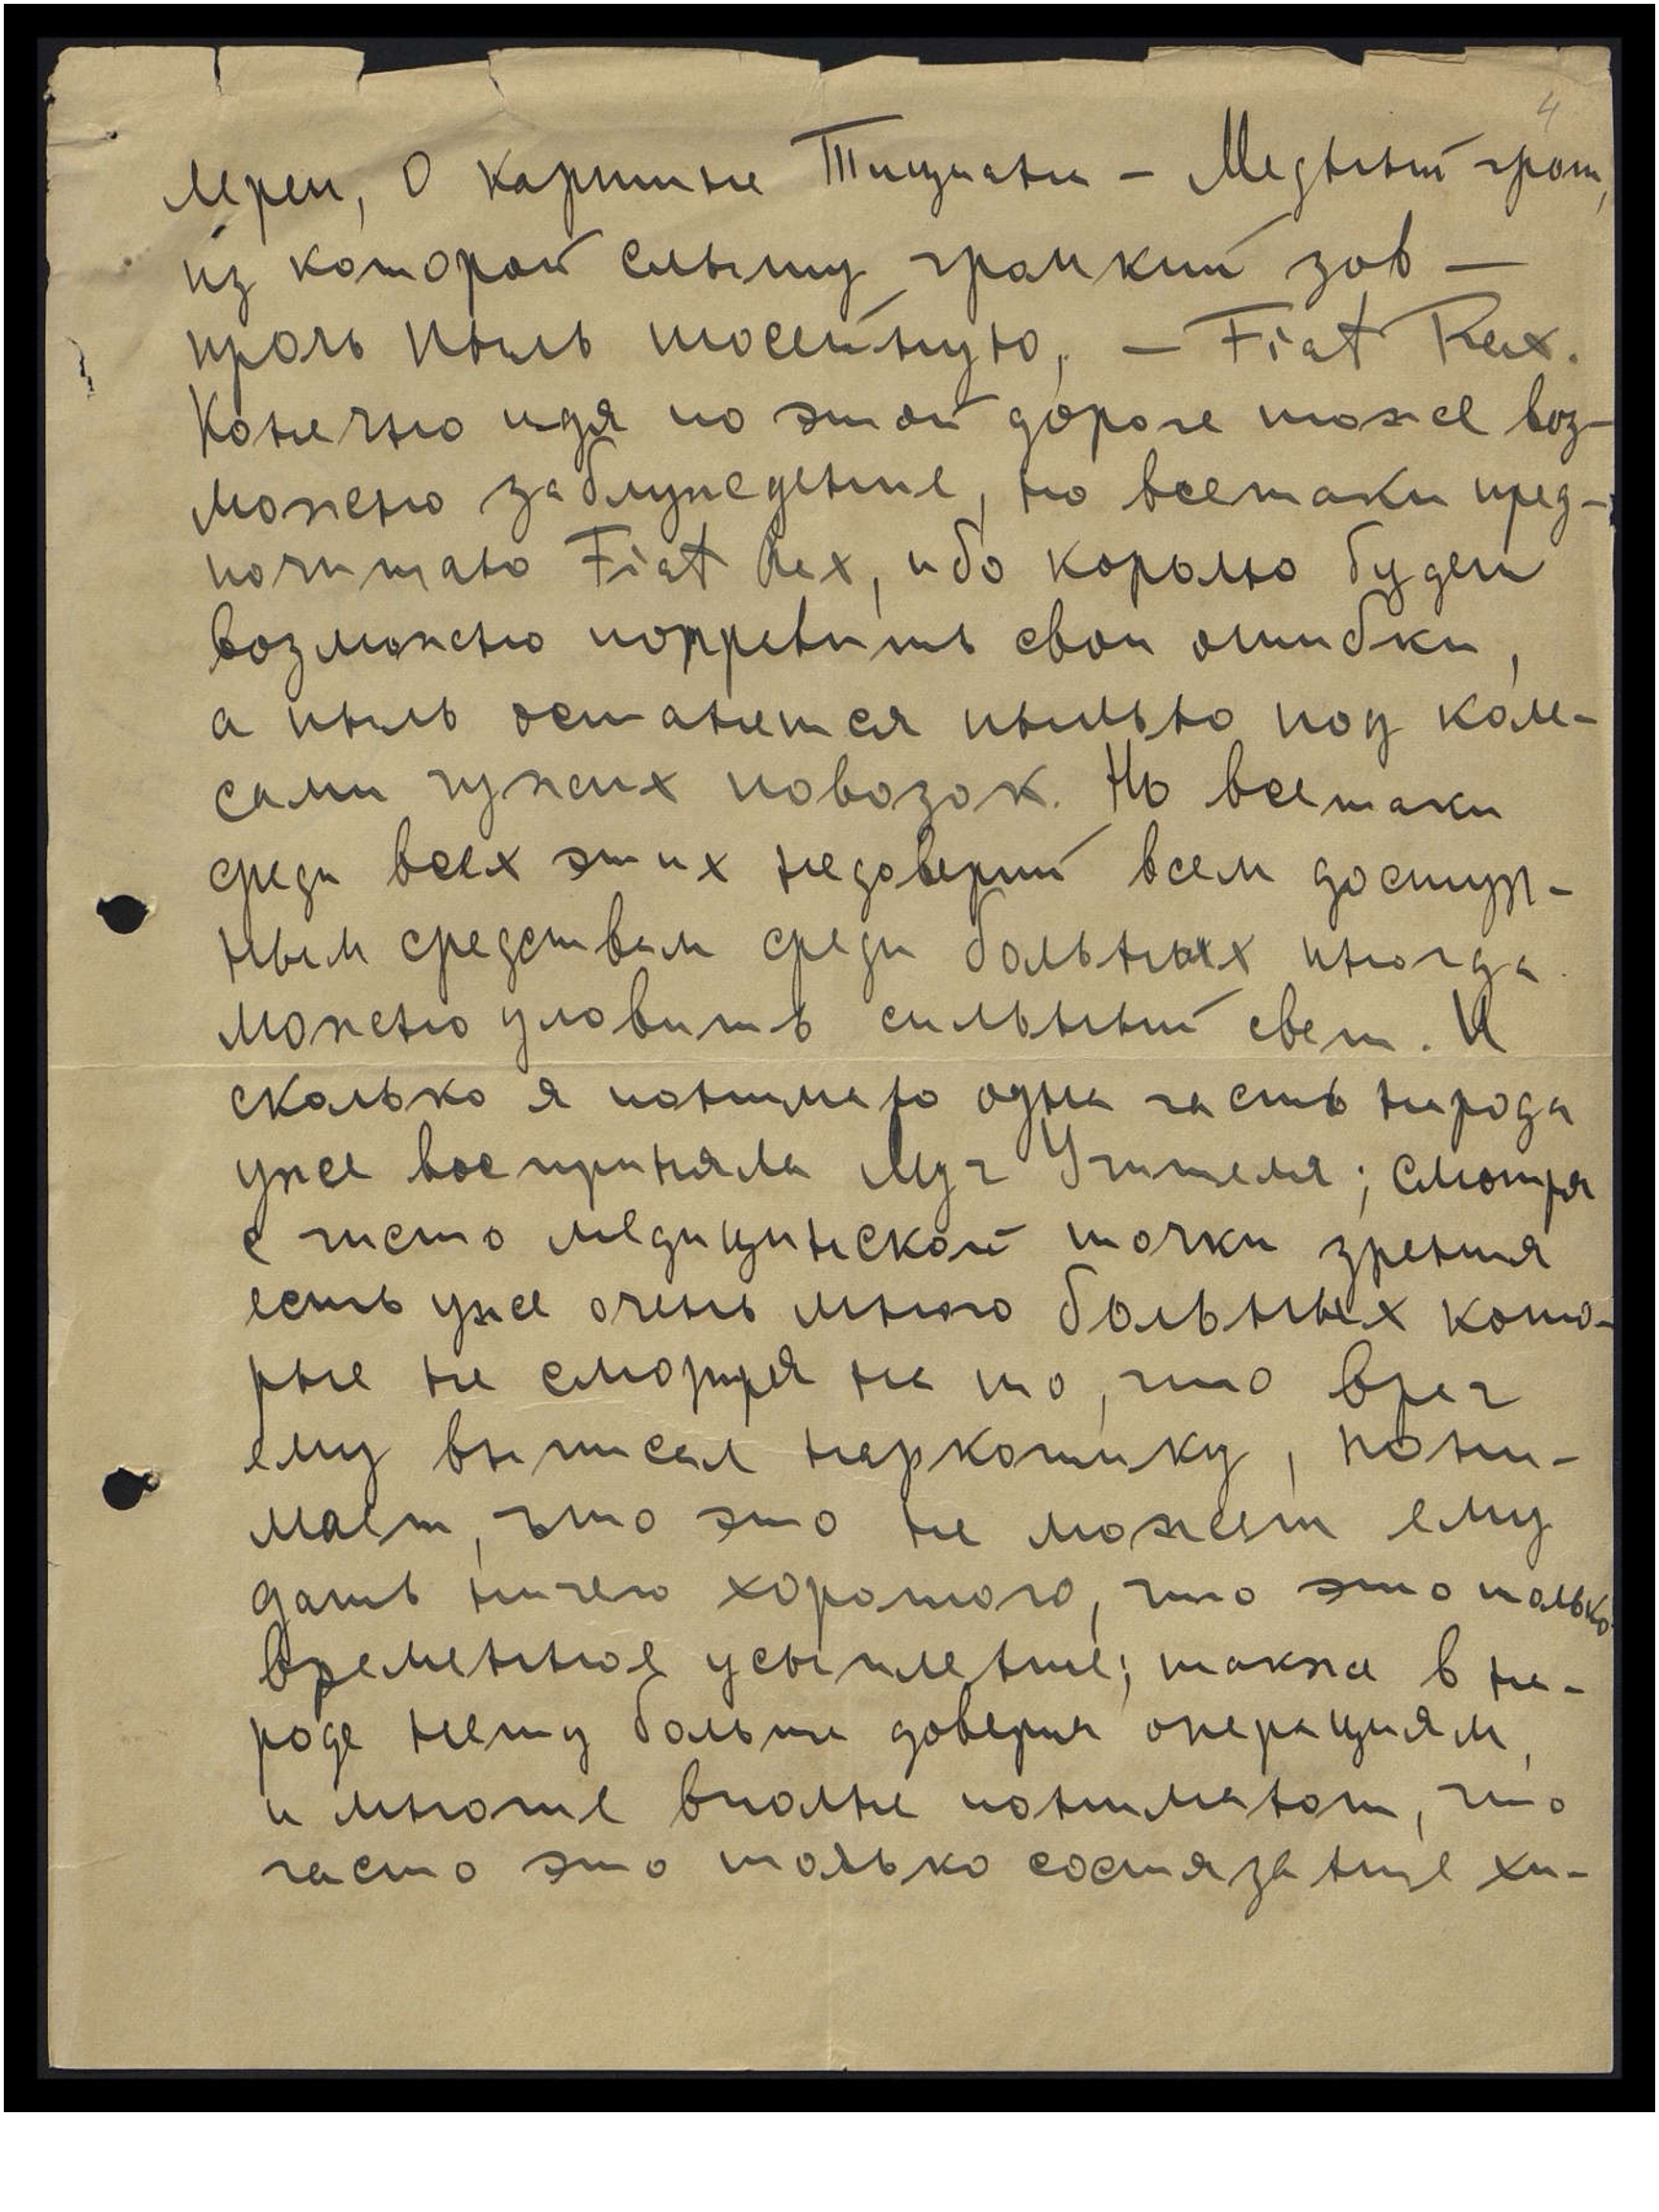 4
мрем, О картине Тициана – Медный грош,
из которой слышу громкий зов –
прочь пыль шосейную, – Fiat Rex.
Конечно идя по этой дороге тоже воз-
можно заблуждение, но всетаки пред-
почитаю Fiat Rex, ибо королю будет
возможно поправить свои ошибки,
а пыль останется пылью под коле-
сами чужих повозок. Но всетаки
среди всех этих недоверий всем доступ-
ным средствам среди больных иногда
можно уловить сильный свет. И
сколько я понимаю одна часть народа
уже восприняла Луч Учителя; смотря
с чисто медицинской точки зрения
есть уже очень много больных кото-
рые не смотря на то, что врач
ему выписал наркотику, пони-
мает, что это не может ему
дать ничего хорошого, что это только
временное усыпление; также в на-
роде нету больше доверия операциям,
и многие вполне понимают, что
часто это только состязание хи-